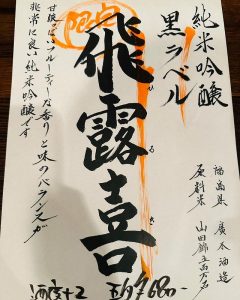 純米吟醸
黒ラベル
限定
飛露喜
ひろき
福島県 廣木酒造
原料米 山田錦 五百万石
甘くてフルーティーな香りと味のバランスが
非常に良い純米吟醸です
酒度+2
680-